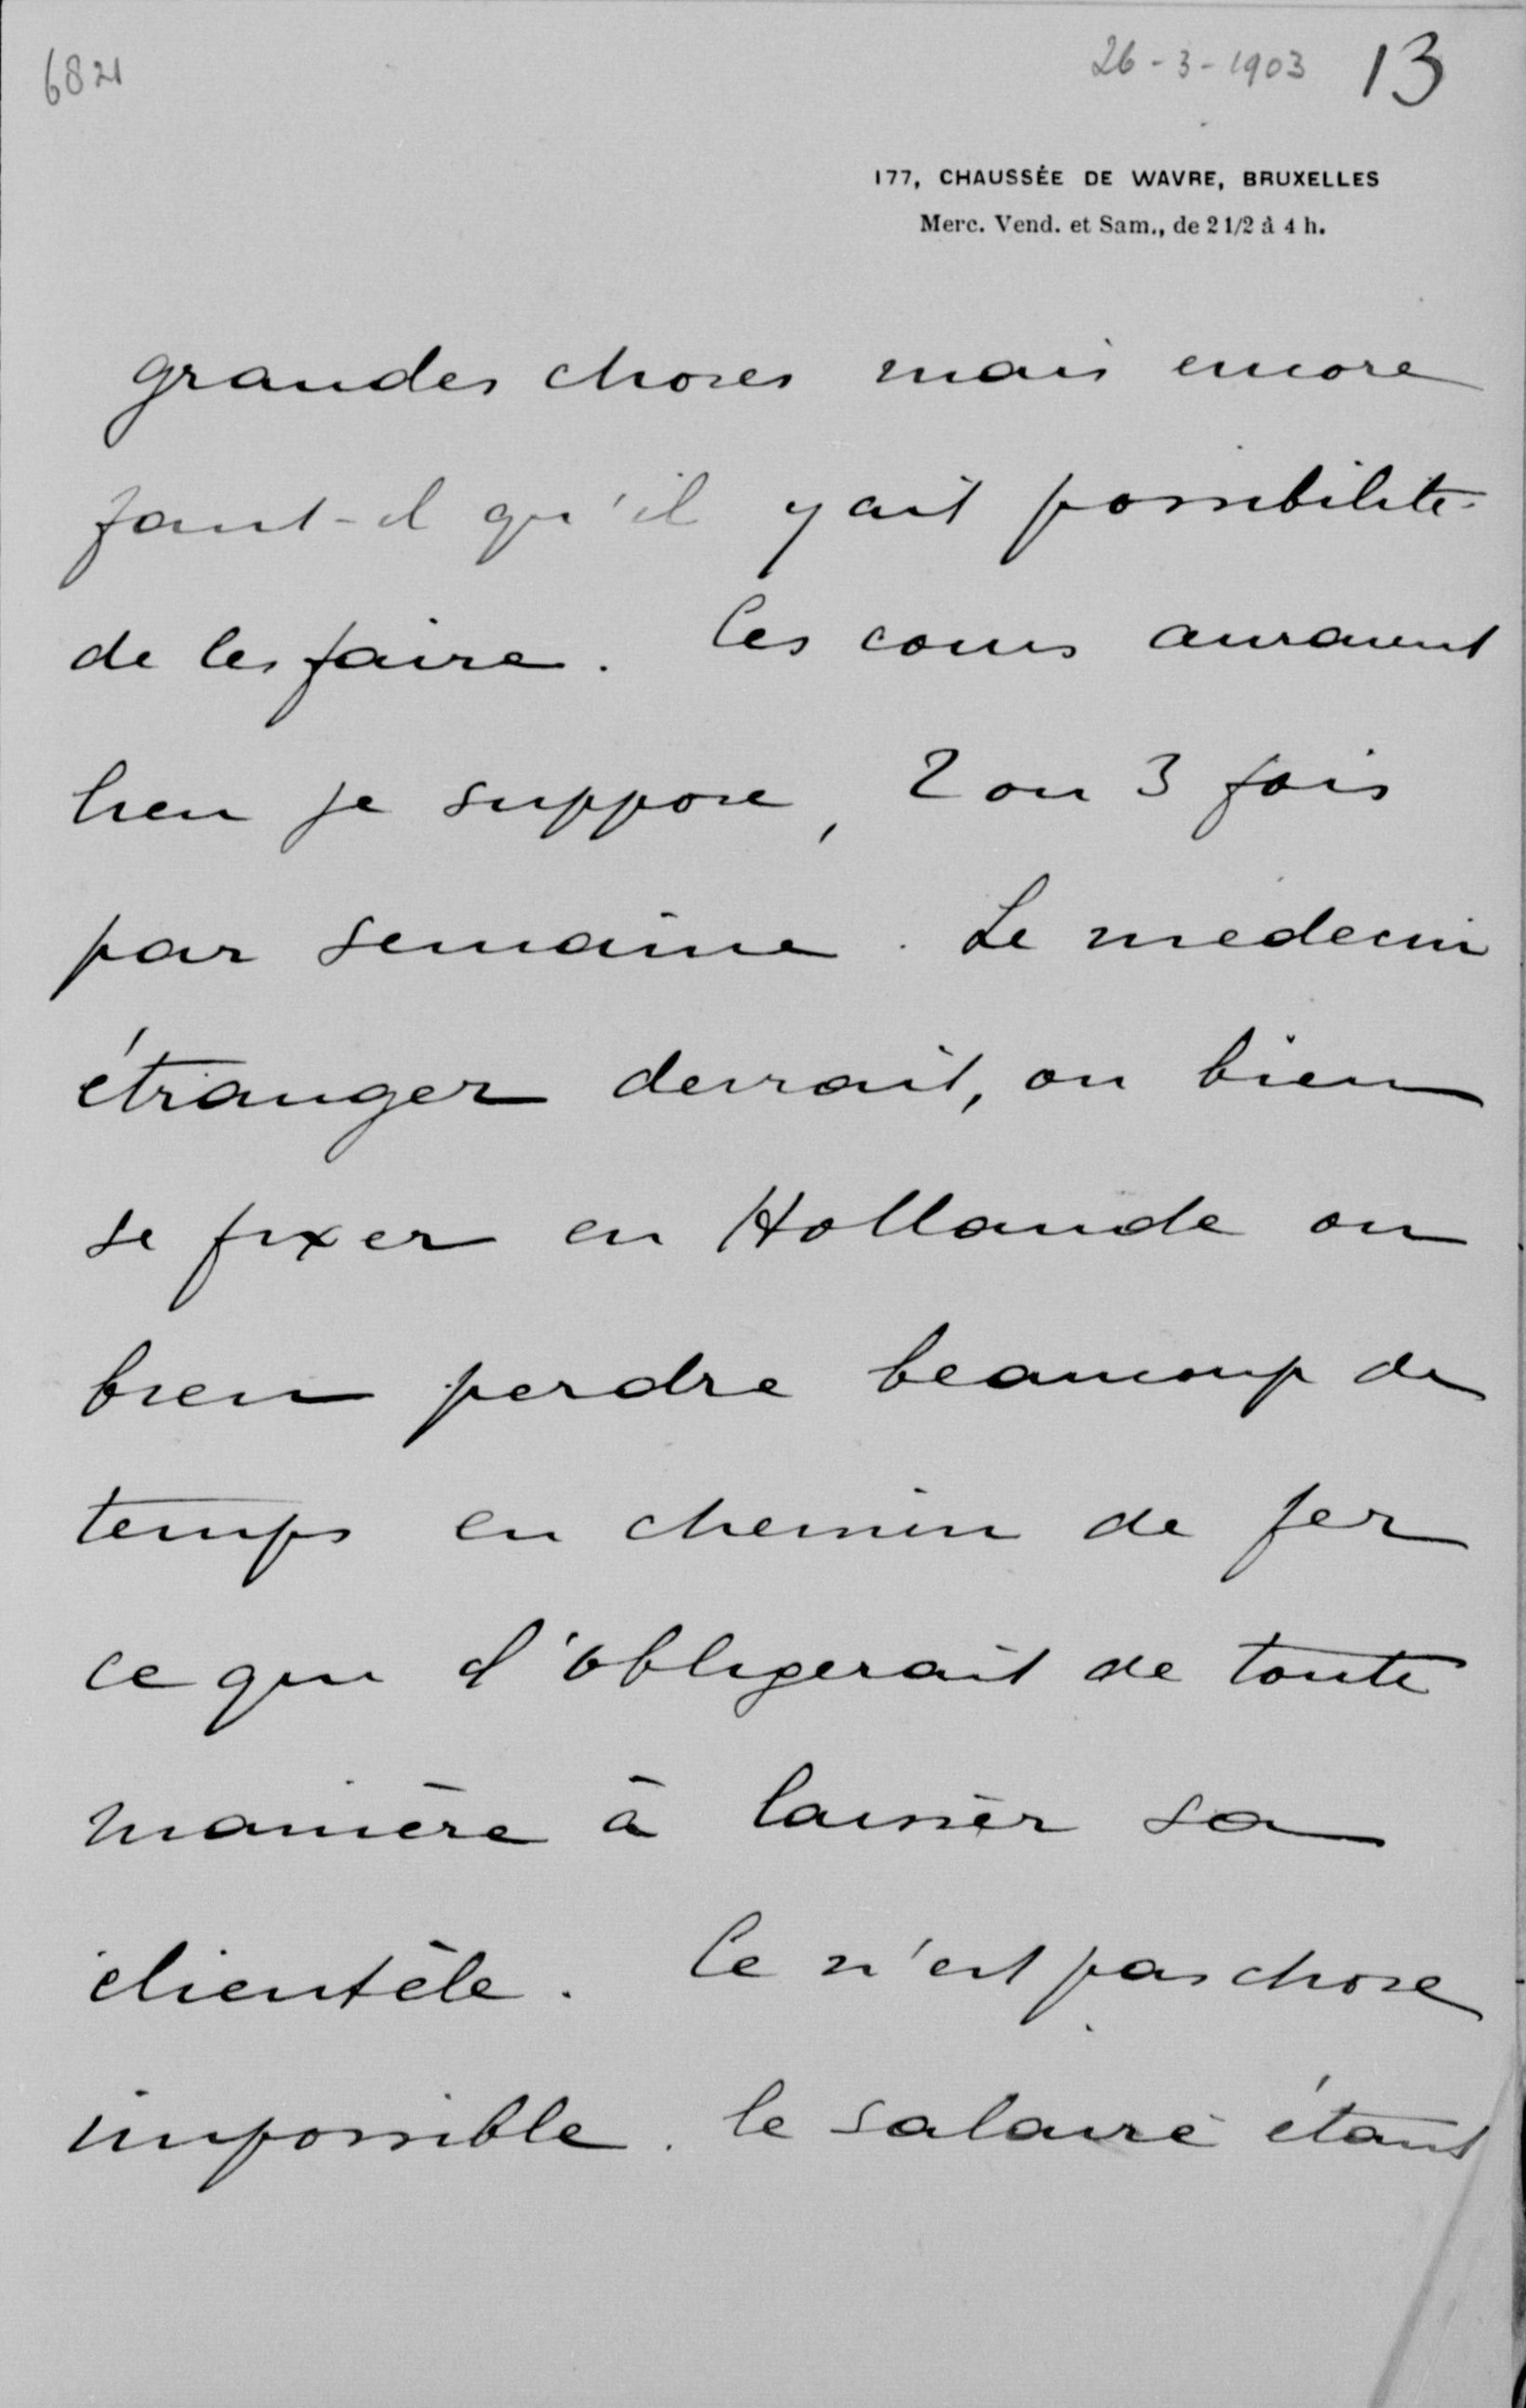 6821
26-3-1903 13
177, CHAUSSÉE DE WAVRE, BRUXELLES
Merc. Vend. et Sam., de 2 1/2 à 4 h.
grandes choses mais encore
faut-il qu'il y ait possibilité
de les faire. Ces cours auraient
lieu je suppose, 2 ou 3 fois
par semaine. Le médecin
étranger devrait, ou bien
se fixer en Hollande ou
bien perdre beaucoup de
temps en chemin de fer
ce qui l'obligerait de toute
manière à laisser sa
clientèle. Ce n'est pas chose
impossible. le salaire étant